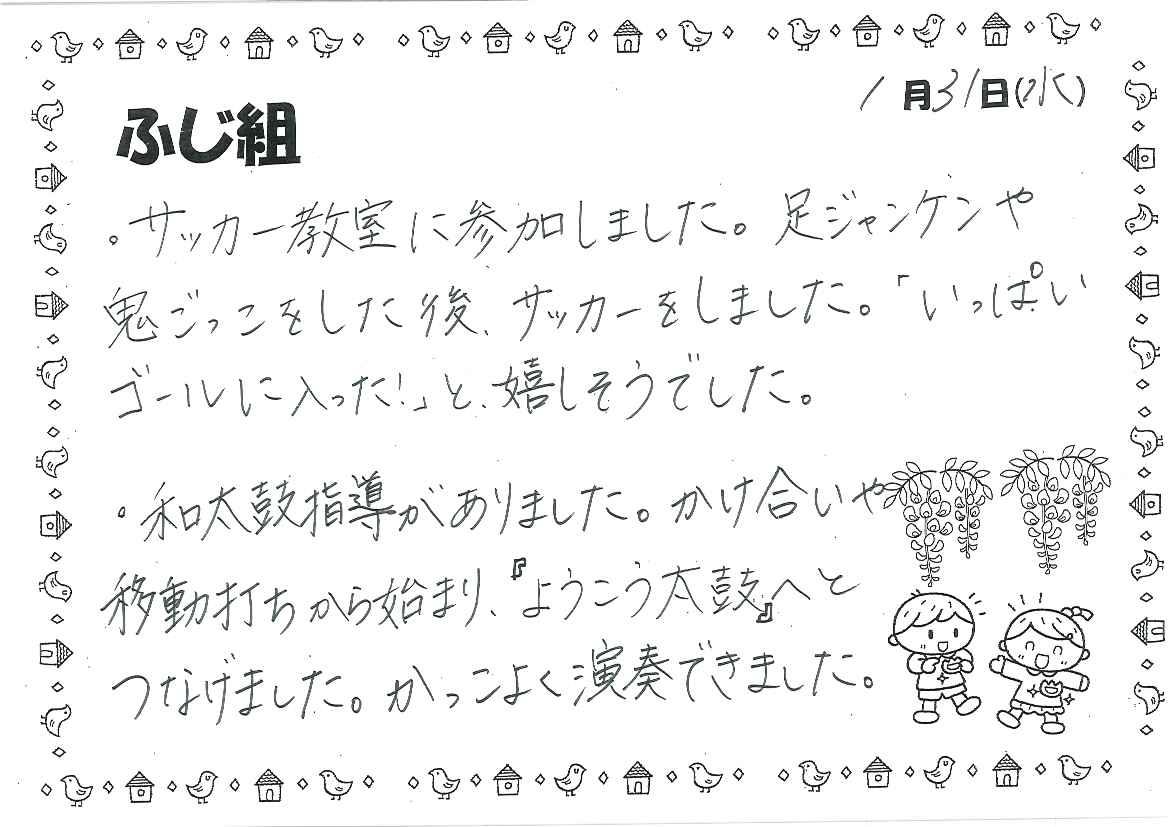 1月31日(水)
ふじ組
・サッカー教室に参加しました。足ジャンケンや
鬼ごっこをした後、サッカーをしました。「いっぱい
ゴールに入った!」と、嬉しそうでした。
・和太鼓指導がありました。かけ合いや
移動打ちから始まり、『ようこう太鼓』へと
つなげました。かっこよく演奏できました。